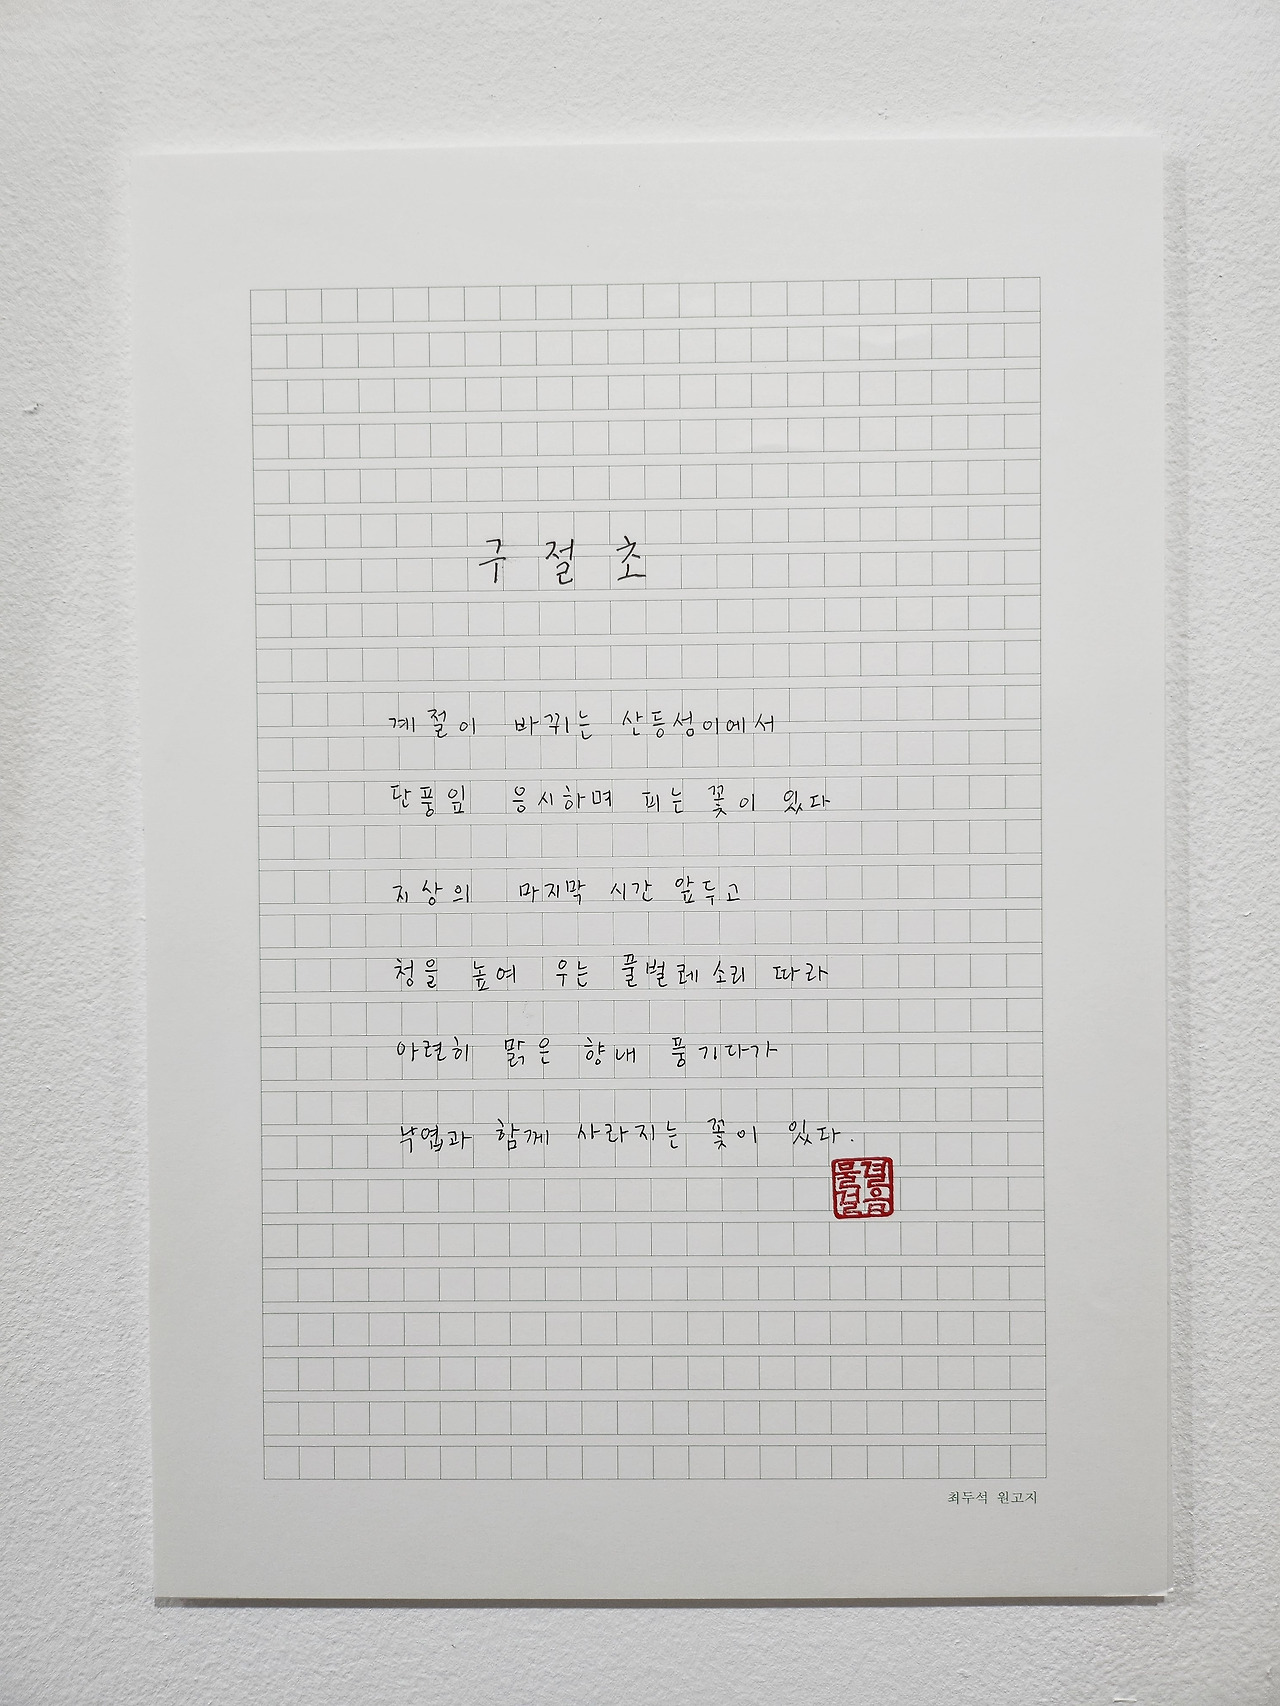 구절초
계절이 바뀌는 산등성이에서
단풍잎 응시하며 피는 꽃이 있다
지상의 마지막 시간 앞두고
청을 높여 우는 풀벌레 소리 따라
아련히 맑은 향내 풍기다가
낙엽과 함께 사라지는 꽃이 있다.
물결
결음
최두석 원고지